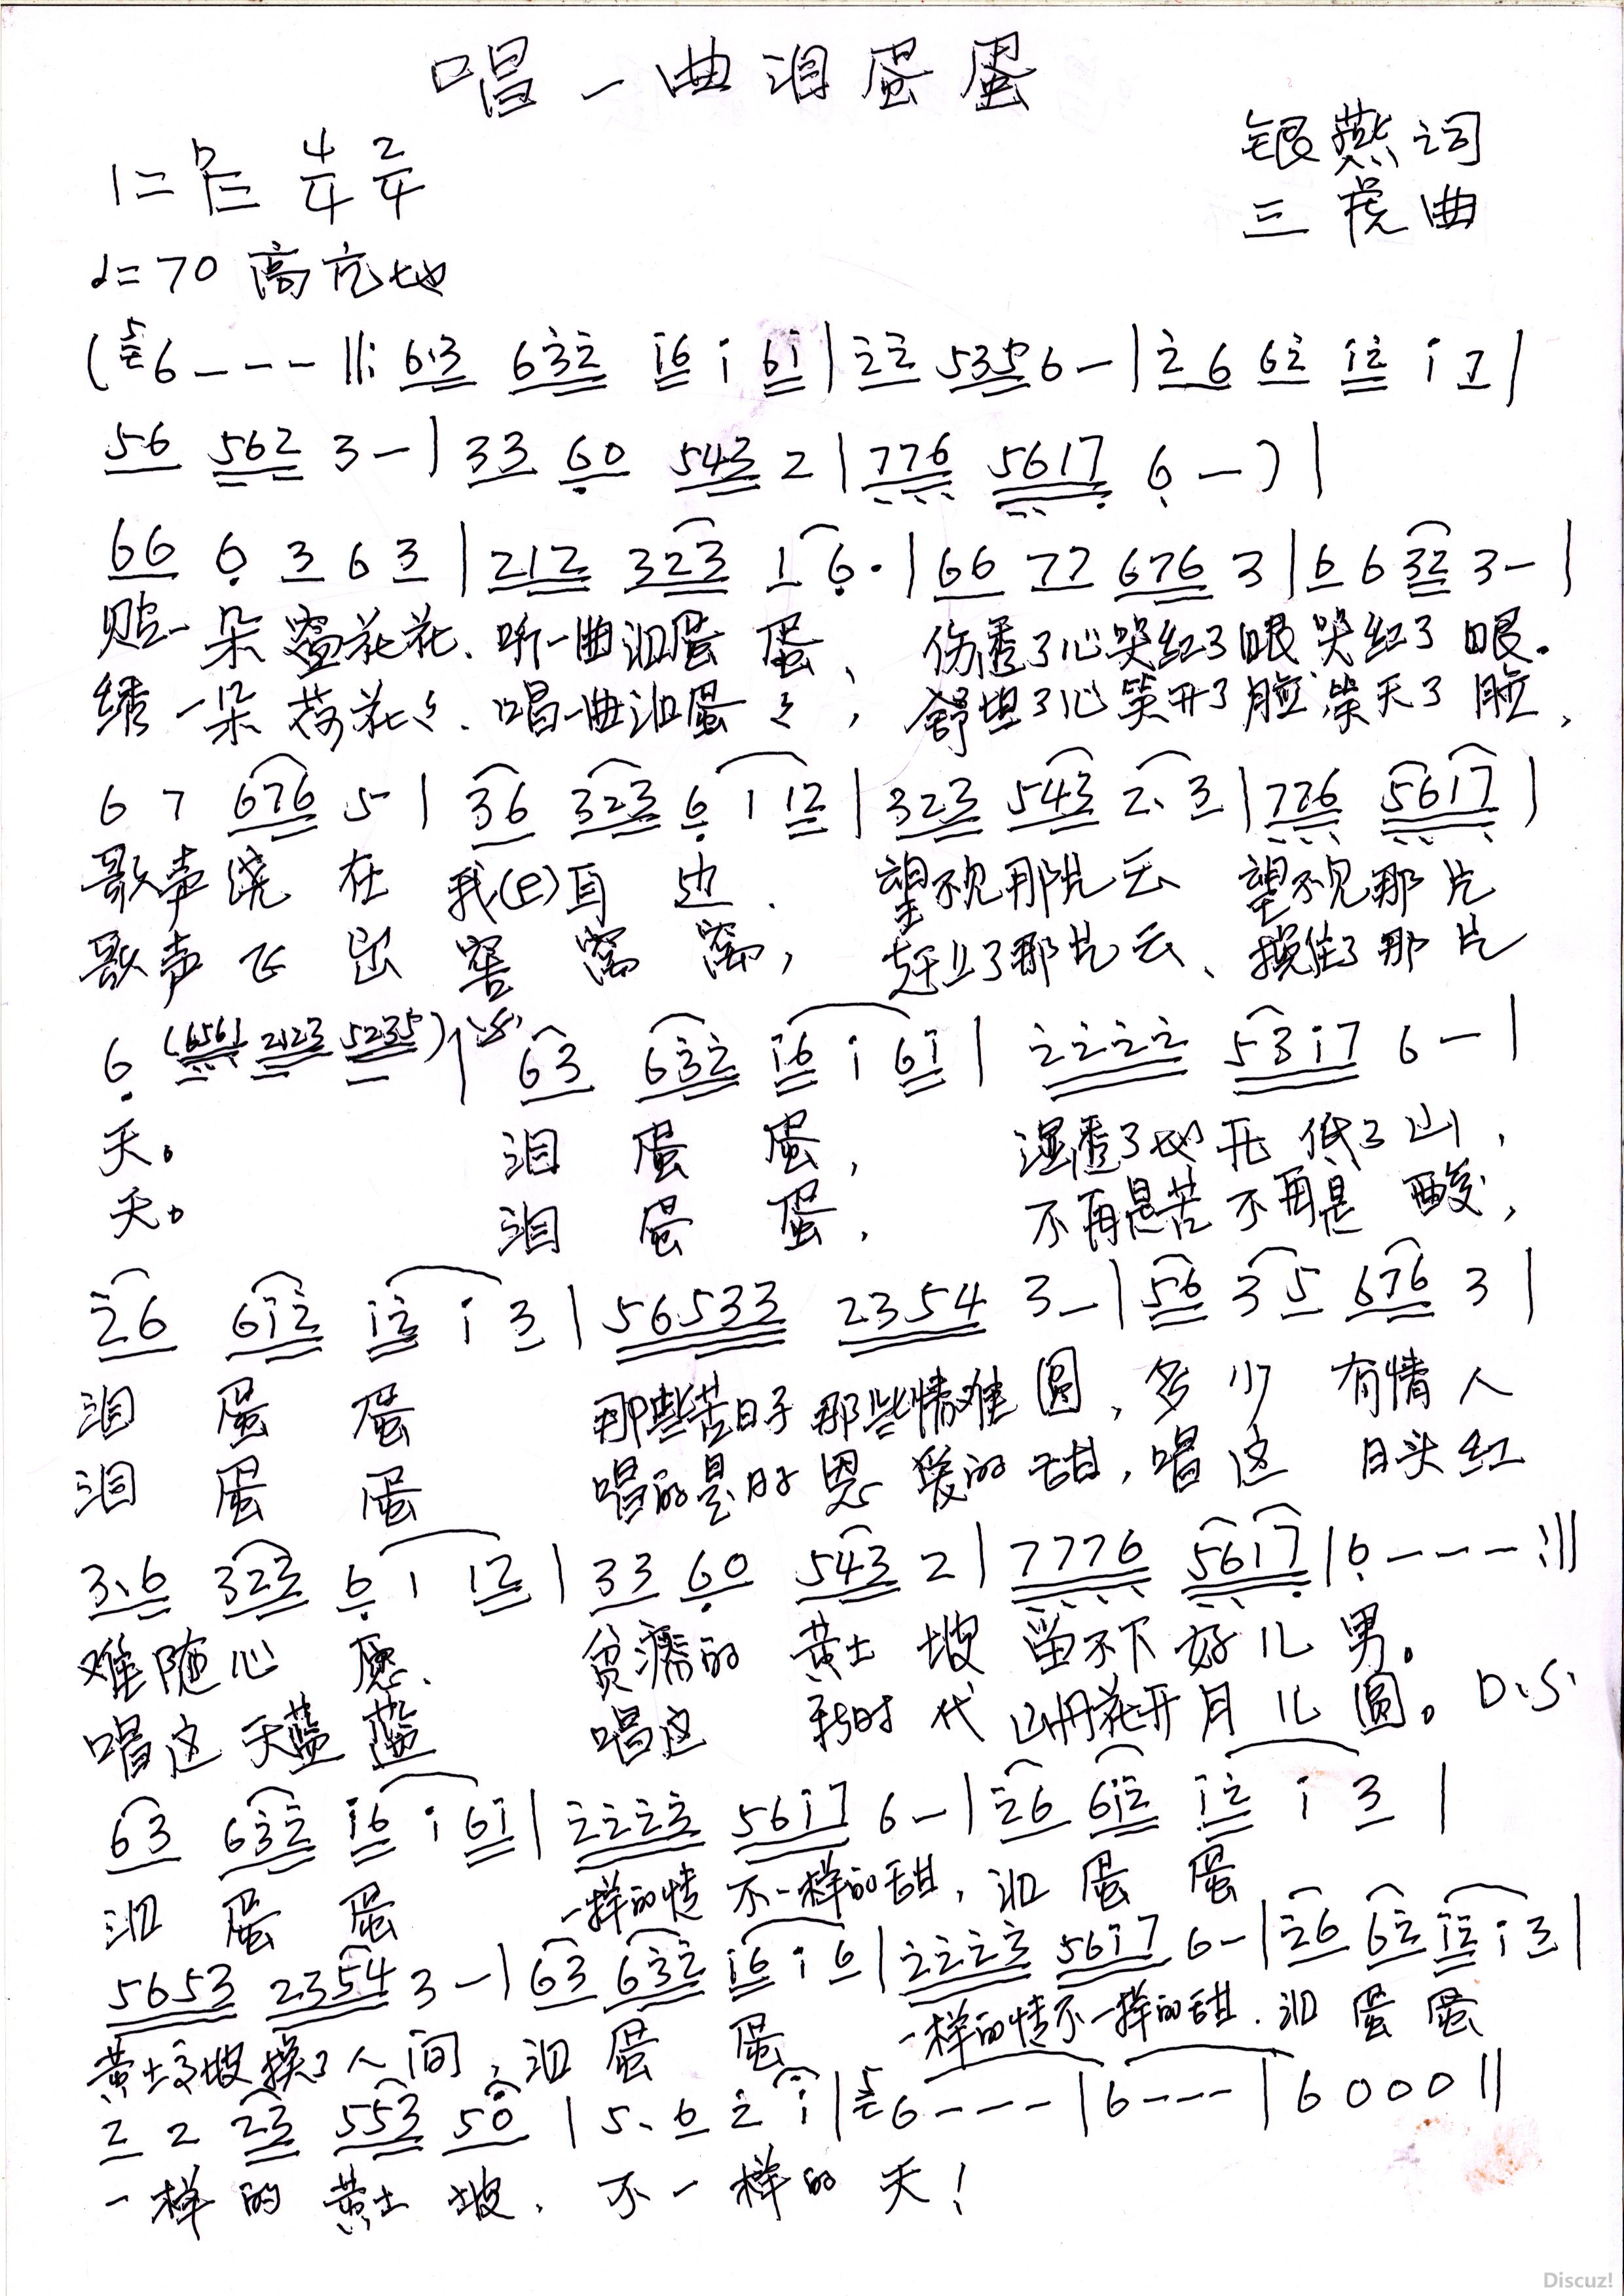 唱一曲泪蛋蛋
1=♭E 4/4 2/4
银燕词
三虎曲
♩=70 高亢地
(5 6 - - - ‖: 6·3 632 i6 i 6i | 22 535 6 - | 2 6 62 i2 i 7 |
56 562 3 - | 33 60 543 2 | 776 5617 6 - ) |
66 6 3 6 3 | 212 323 1 6· | 66 77 676 3 | 6 6 32 3 - |
贴一朵窗花花、听一曲泪蛋蛋、伤透了心哭红了眼哭红了眼。
绣一朵荷花〻、唱一曲泪蛋〻，舒坦了心笑开了脸笑天了脸，
6 7 676 5 | 36 323 6 1 12 | 323 543 2· 3 | 776 5617 |
歌声绕在我(的)耳边、望不见那片云 望不见那片
歌声飞出窑窝窝，赶上了那片云、摸住了那片
6 (6561 2123 5235) | 63 632 i6 i 6i | 2222 53i7 6 - |
天。泪蛋蛋，湿透了 低了山，
天。泪蛋蛋，不再是苦不再是酸，
26 6i2 i2 i 3 | 56533 2354 3 - | 56 3 5 676 3 |
泪蛋蛋 那些苦日子那些情难圆，多少有情人
泪蛋蛋 唱的是 恩爱的甜，唱这日头红
3·6 323 6 1 12 | 33 60 543 2 | 7776 5617 | 6 - - - :‖
难随心愿、贫瘠的黄土坡留不下好儿男。
唱这天蓝蓝 唱这新时代山丹花开月儿圆。D.S.
63 632 i6 i 6i | 2223 56i7 6 - | 26 6i2 i2 i 3 |
泪蛋蛋 一样的情不一样的甜，泪蛋蛋
5653 2354 3 - | 63 632 i6 i 6 | 2223 56i7 6 - | 26 62 i2 i 3 |
黄土坡换了人间，泪蛋蛋 一样的情不一样的甜、泪蛋蛋
2 2 23 553 50 | 5· 6 2 i | 5 6 - - - | 6 - - - | 6 0 0 0 ‖
一样的黄土坡、不一样的天！
Discuz!